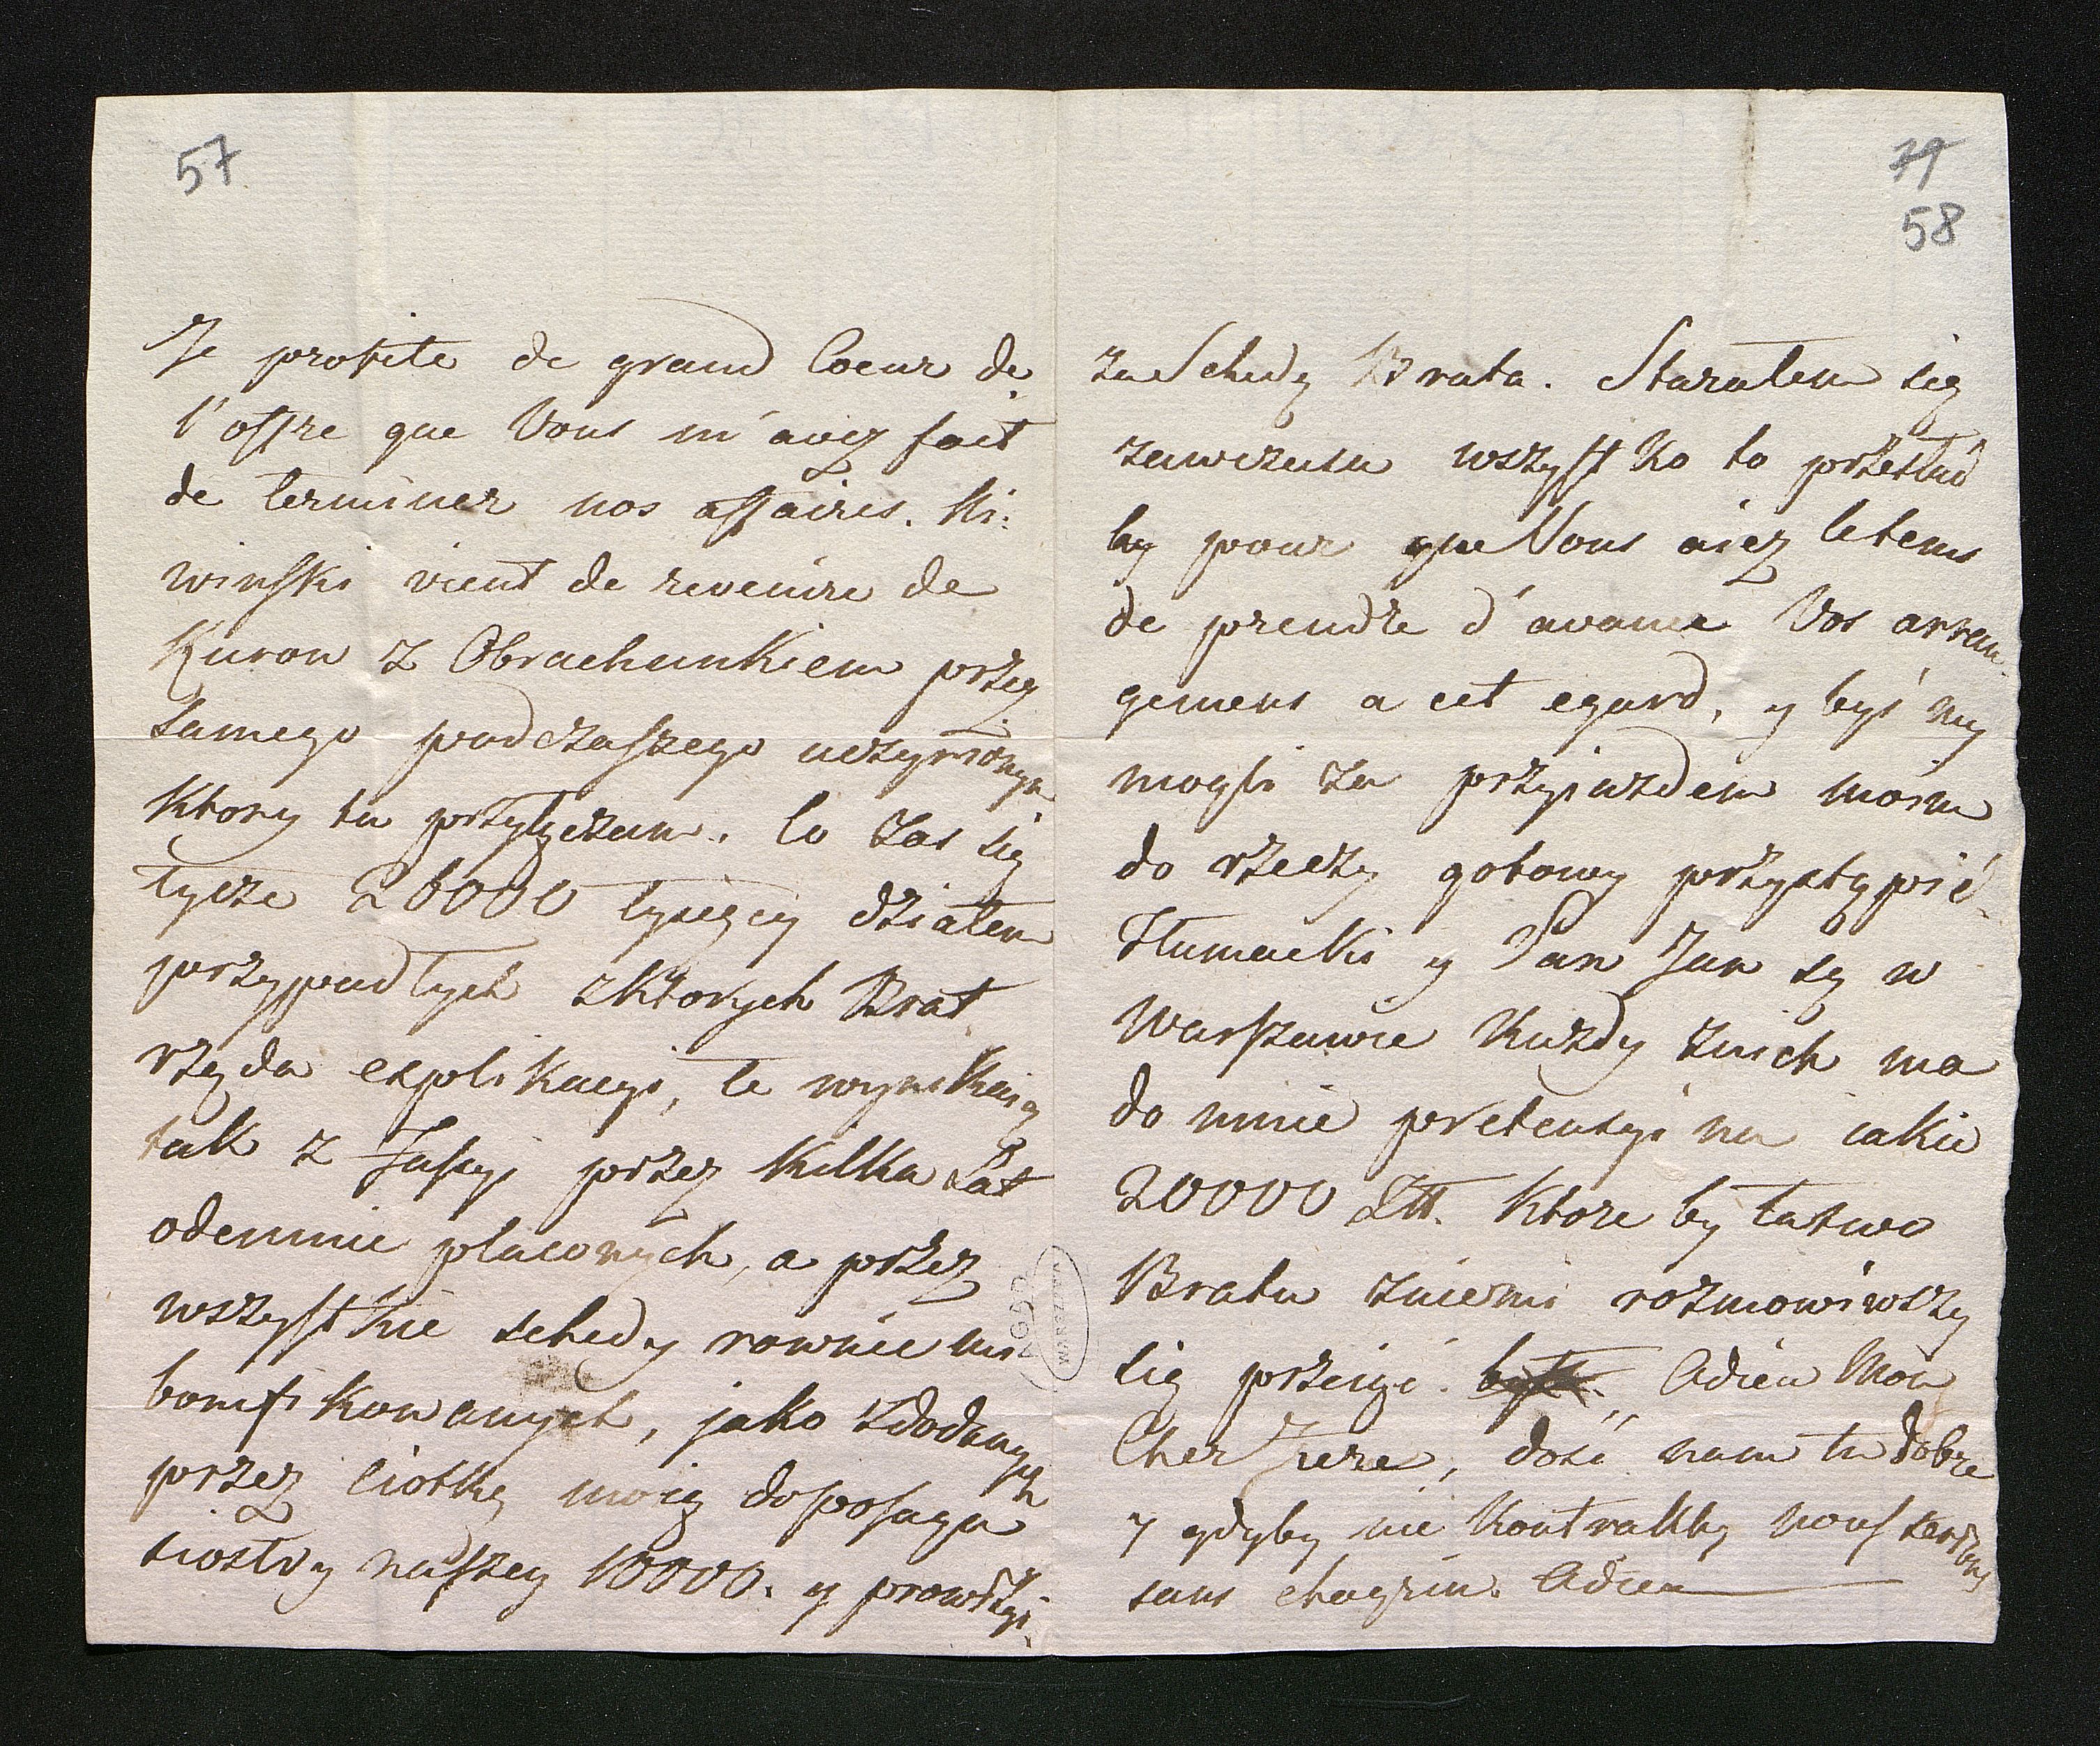 57
Je profite de grand Coeur de
l'offre que Vous m'avez fait
de terminer nos affaires. Ki:
winski vient de revenire de
Kurow z Obrachunkiem przez
samego podczaszego uczynionym
ktory tu przyłączam. Co zas się
tycze 26000 tysięcy działem
przypadłych z ktorych Brat
rząda explikacyi, te wynikaią
tak z Jassyi przez kilka Lat
odemnie płaconych, a przez
wszystkie schedy rownie mi
bonifikowanych, jako z dodanych
przez Ciotkę moią do posagu
siostry naszey 10000. y prowizyi
79
58
za Schedę Brata. Starałem się
zawczasu wszystko to przesłać
by pour que Vous aiez le tems
de prendre d'avance Vos arran
gemens a cet egard, y byśmy
mogli za przyjazdem moim
do rzeczy gotowy przystąpić.
Tłumacki y Pan Jan są w
Warszawie każdy z nich ma
do mnie pretensyi na iakie
20000 Złł. ktore by łatwo
Bratu z niemi rozmowiwszy
się przeiąć. Adieu Mon
Cher Frere, dość nam tu dobrze
y gdyby nie kontrakty nous serions
sans chagrin. Adieu
AGAD
WARSZAWA